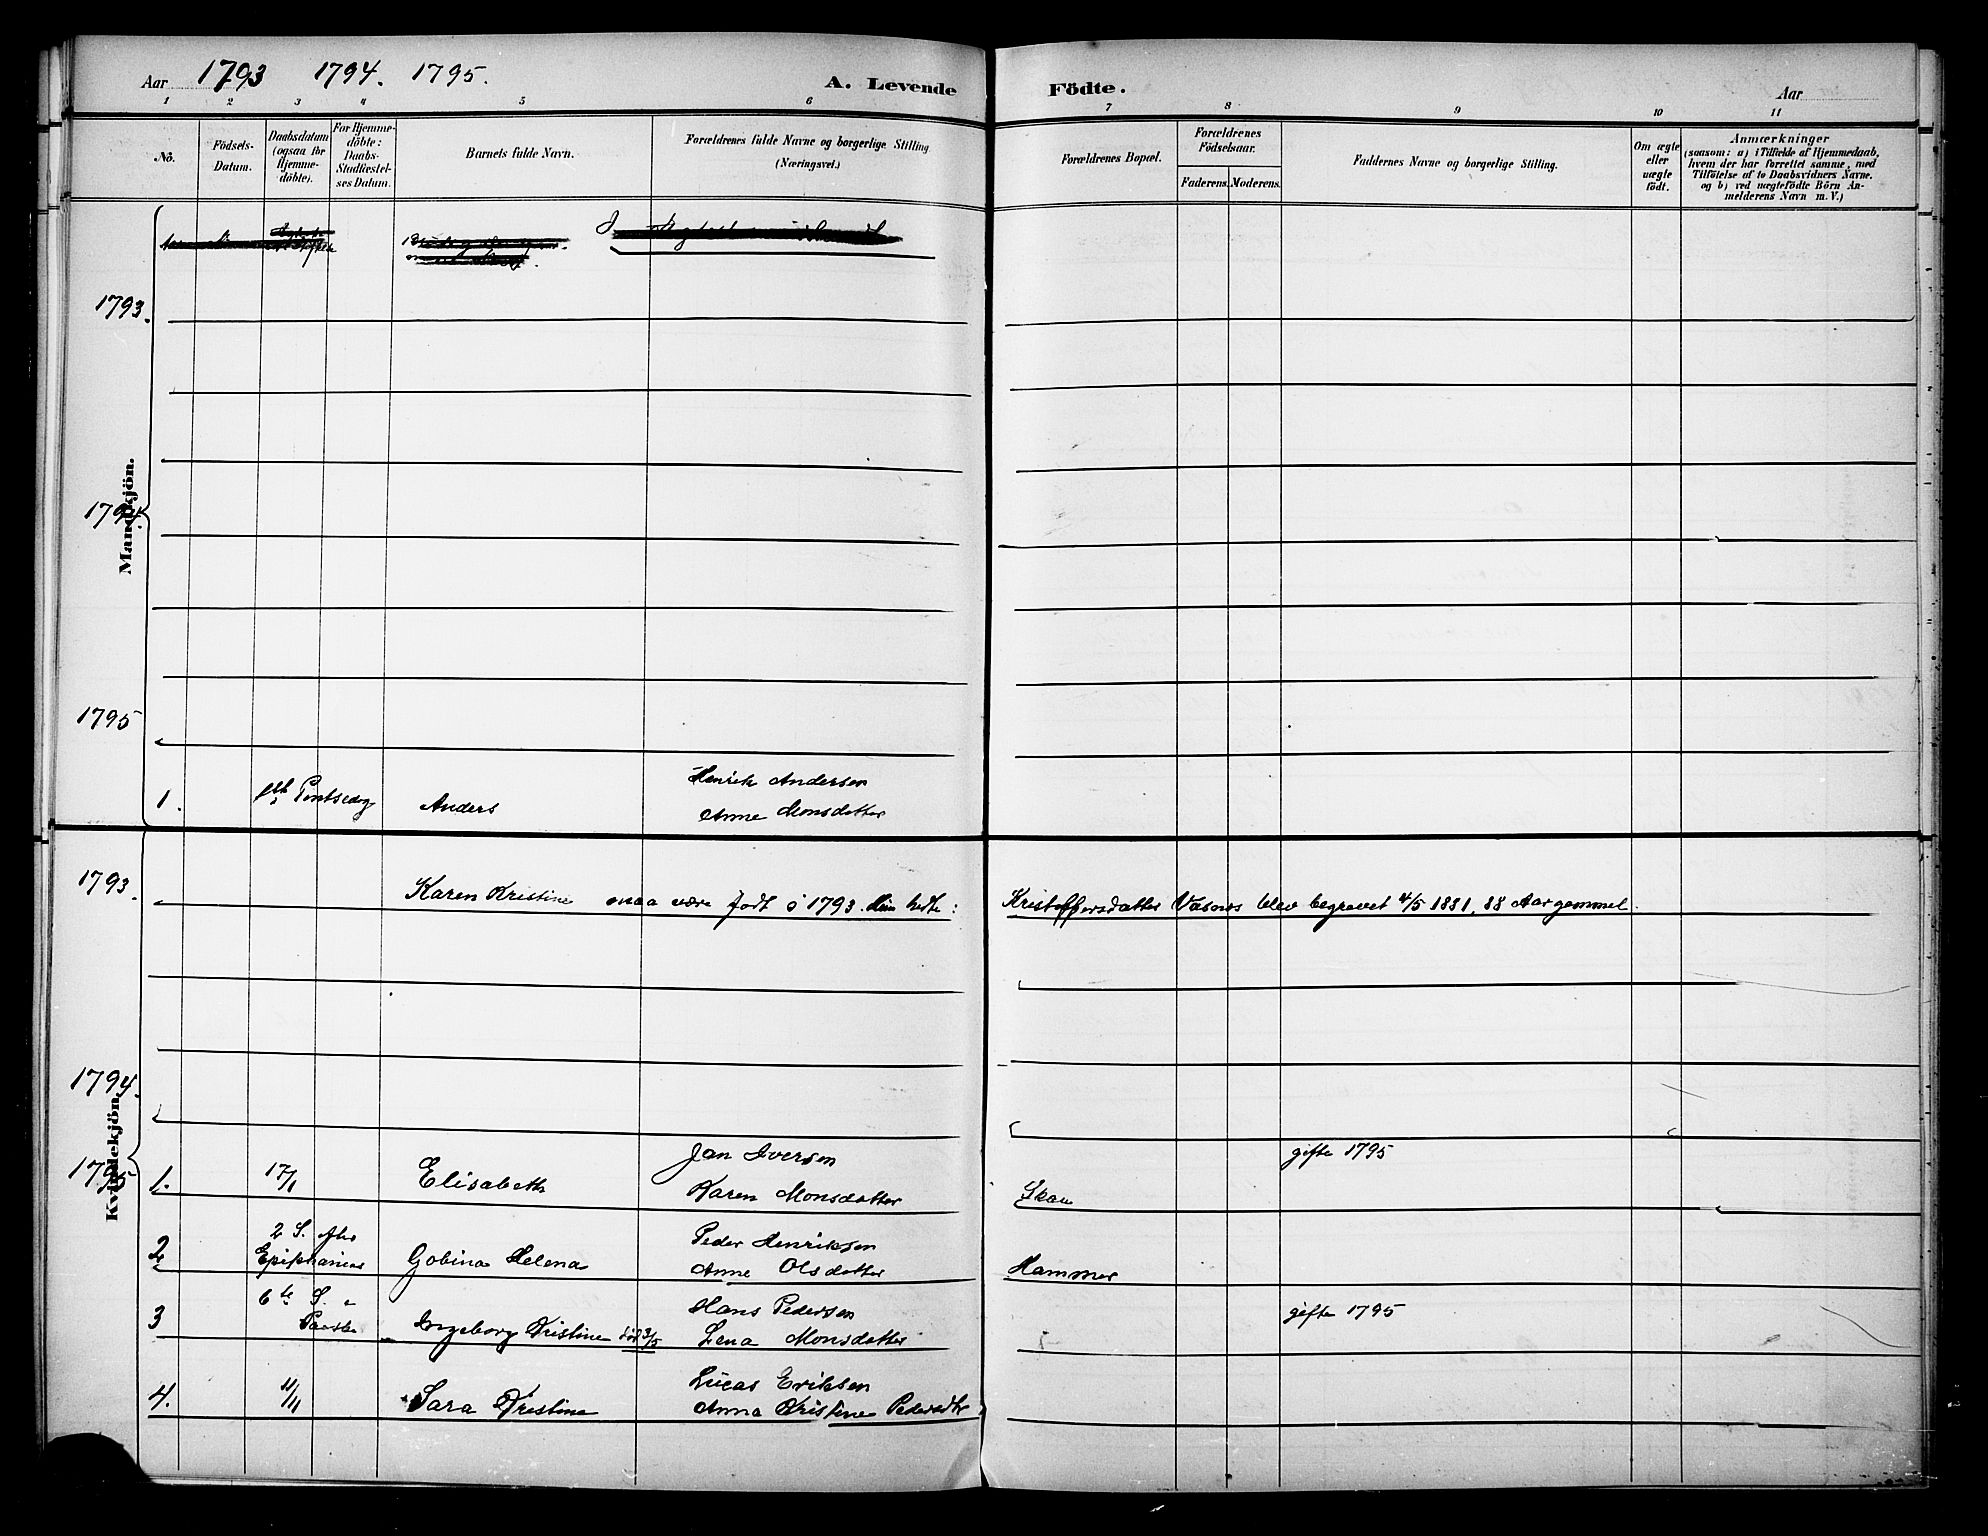 Aar 1793 1794. 1795. A. Levende Födte. Aar
1 2 3 4 5 6 7 8 9 10 11
Nö.
Födsels-
Datum.
Daabsdatum
(ogsaa for
Hjemme-
döbte).
For Hjemme-
döbte:
Daabs-
Stadfæstel-
ses Datum.
Barnets fulde Navn.
Forældrenes fulde Navne og borgerlige Stilling
(Næringsvei.)
Forældrenes Bopæl.
Forældrenes
Födselsaar.
Faderens. Moderens.
Faddernes Navne og borgerlige Stilling.
Om ægte
eller
uægte
født.
Anmærkninger
(saasom: a) i Tilfælde af Hjemmedaab,
hvem der har forrettet samme, med
Tilföielse af to Daabsvidners Navne.
og b) ved uægtefödte Börn An-
melderens Navn m. V.)
1793.
Mandkjön.
1794.
1795
Henrik Andersen
1. Anders
Anne Monsdatter
1793.
Karen Kristine maa være født i 1793. Hun hedte: Kristoffersdatter Vasnes blev begravet 4/5 1881, 88 Aar gammel.
1794.
Kvindekjön.
1795
Jan Iversen gifte 1795
1. 17/1 Elisabeth
Karen Monsdatter Skau
2 S. efter Peder Henriksen
2 Epiphanias Gobina Helena
Anne Olsdatter Hammer
6te S. " Hans Pedersen gifte 1795
3 Paaske Ingeborg Kristine død 3/5 Lena Monsdatter
Lucas Eriksen
4. 11/11 Sara Kristine
Anna Kristine Pedersdtr